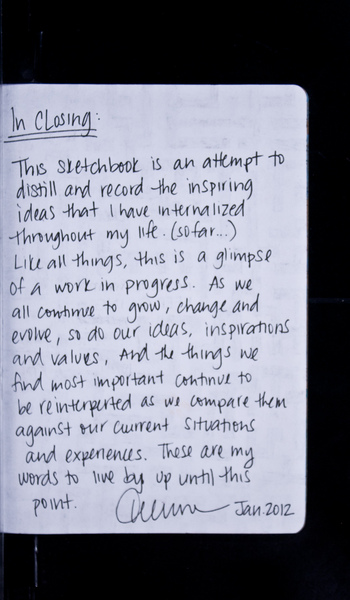 In Closing:
This sketchbook is an attempt to
distill and record the inspiring
ideas that I have internalized
throughout my life. (so far...)
Like all things, this is a glimpse
of a work in progress. As we
all continue to grow, change and
evolve, so do our ideas, inspirations
and values, And the things we
find most important continue to
be reinterperted as we compare them
against our current situations
and experiences. These are my
words to live by up until this
point. Jan. 2012